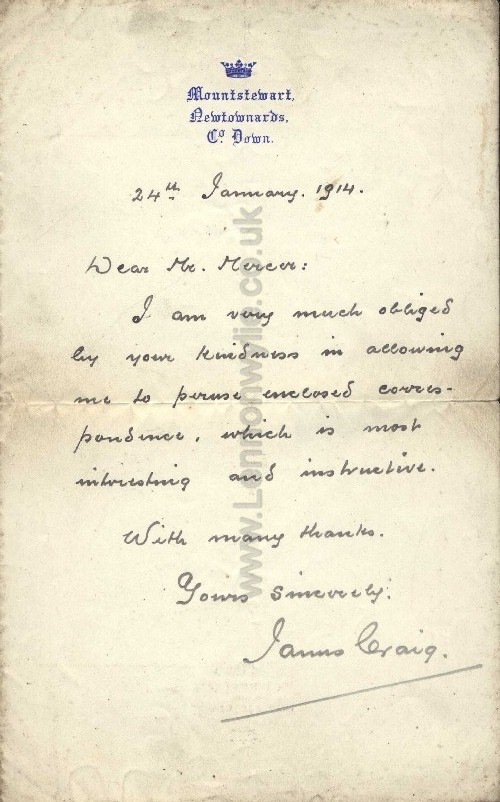 Mountstewart,
Newtownards,
Co. Down.
24th January. 1914.
Dear Mr. Mercer:
I am very much obliged
by your kindness in allowing
me to peruse enclosed corres-
pondence, which is most
interesting and instructive.
With many thanks.
Yours sincerely.
James Craig.
www.Lennonwylie.co.uk